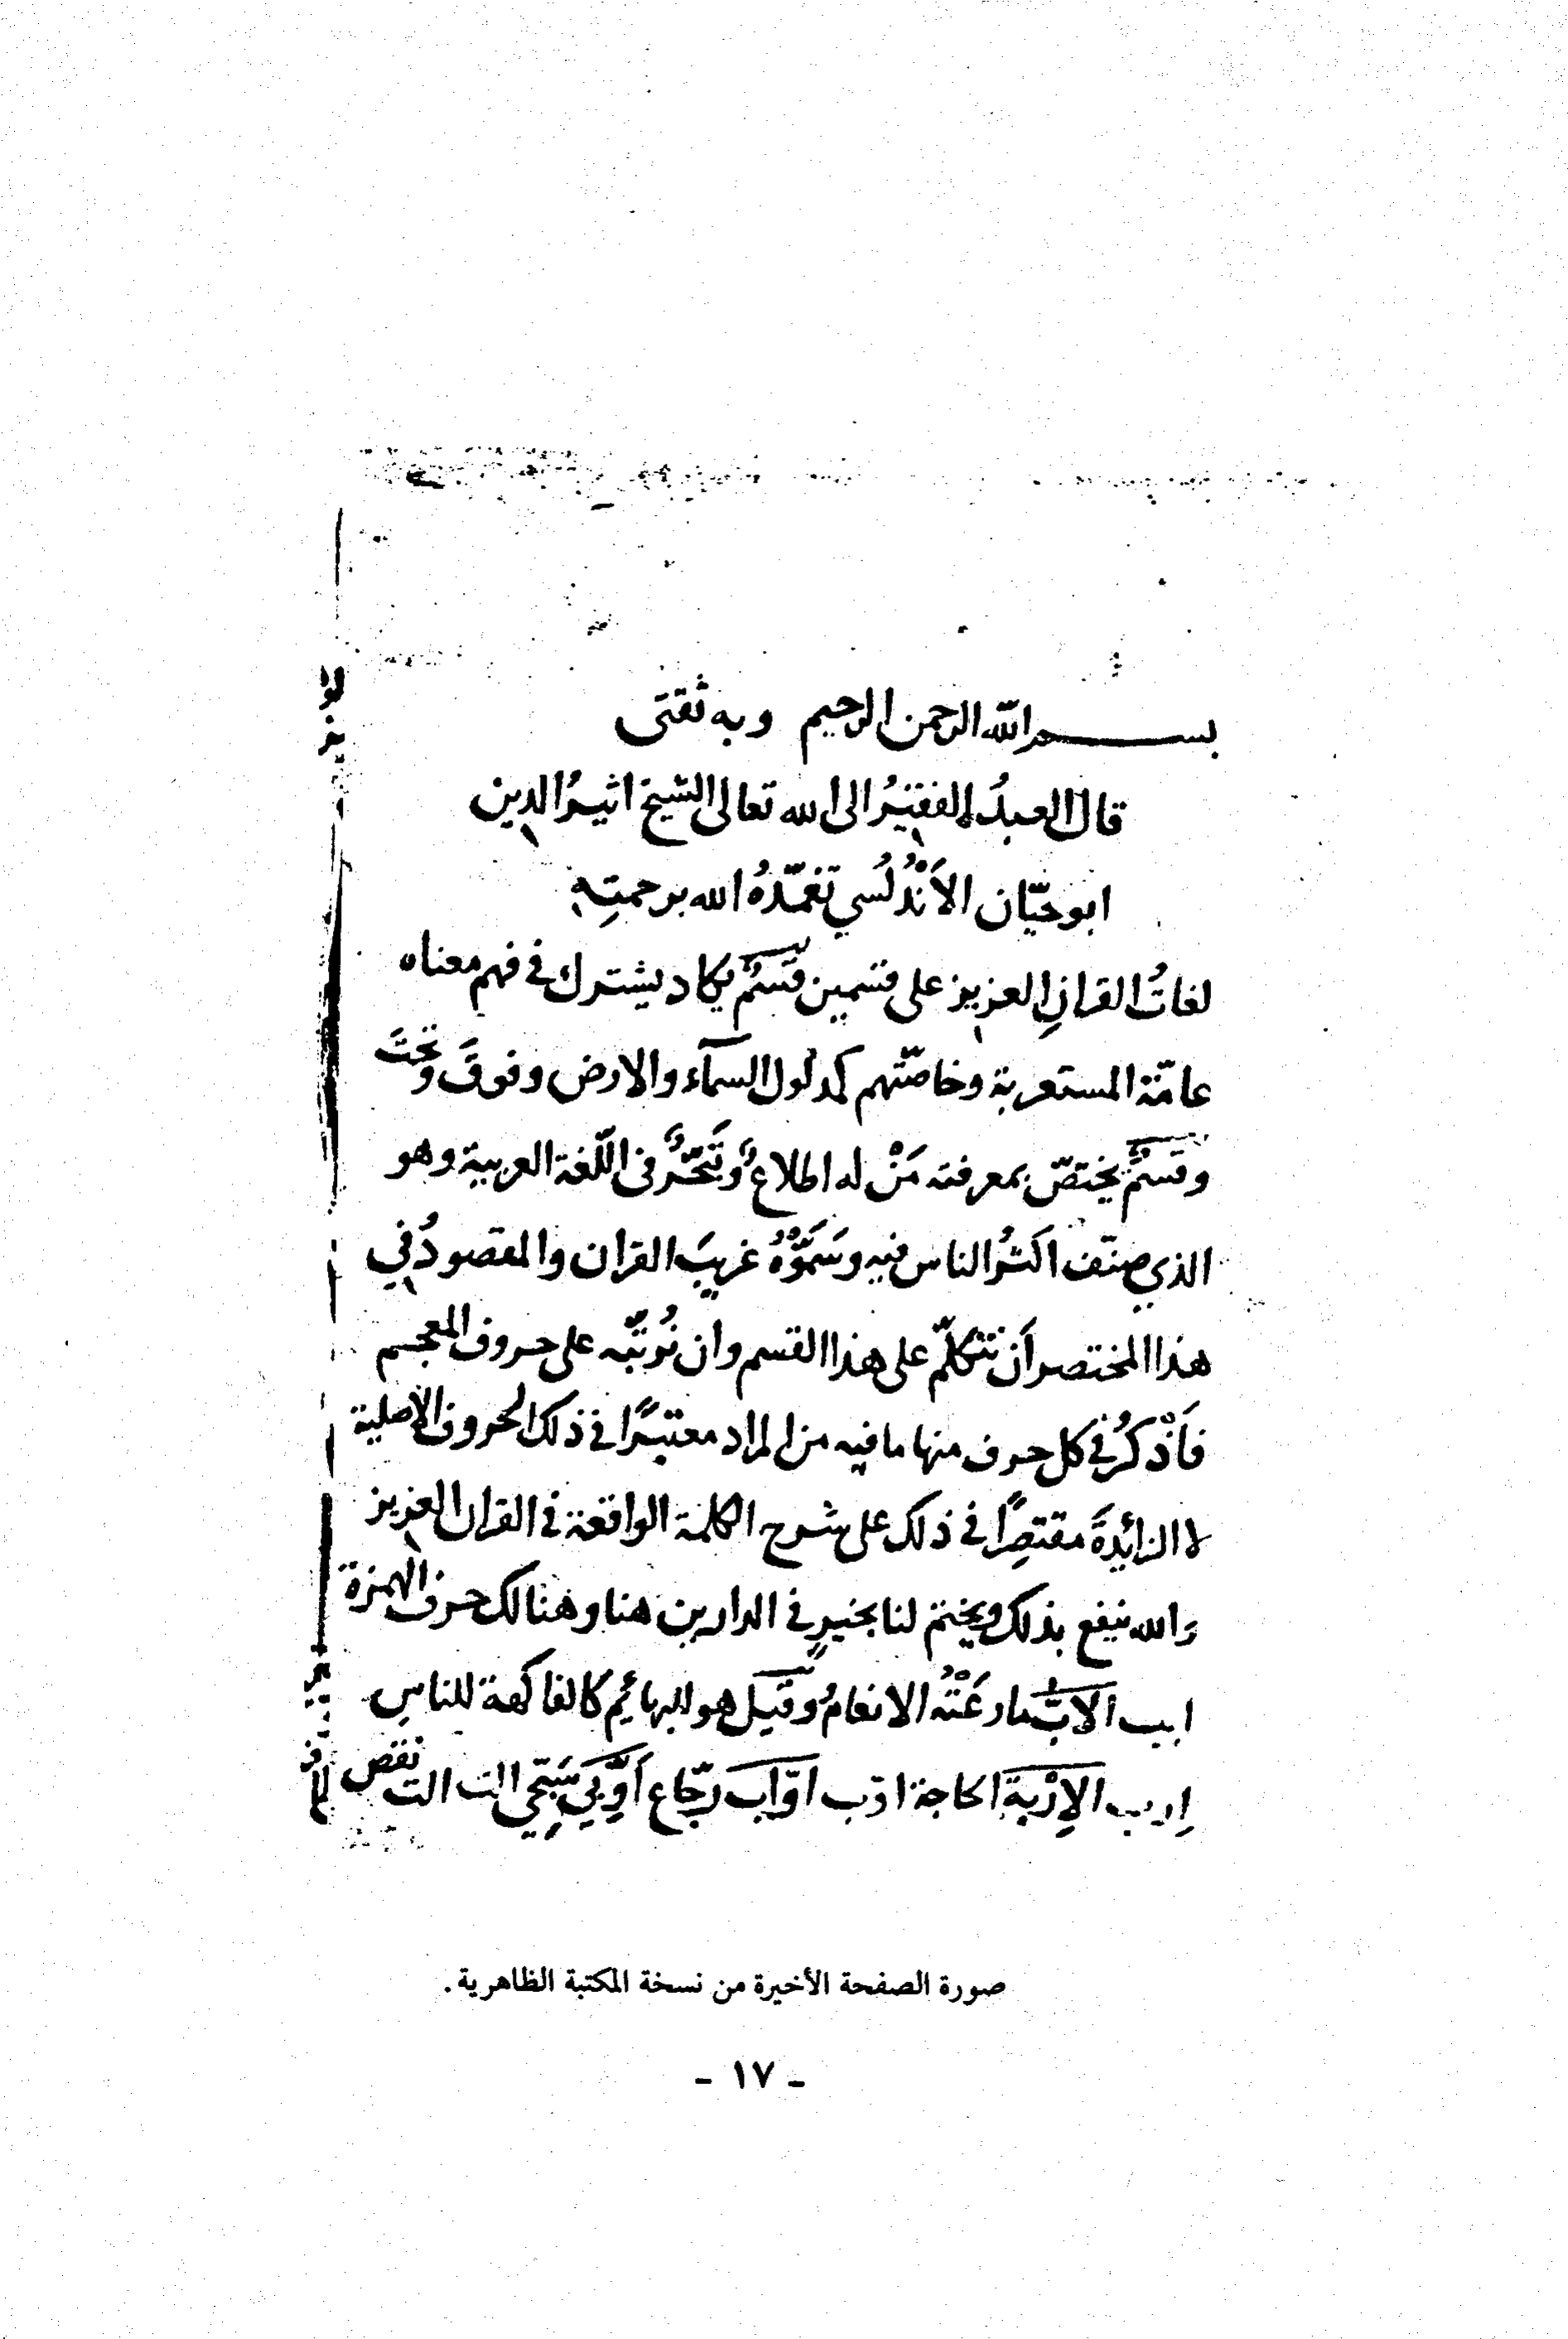 بسم الله الرحمن الرحيم وبه ثقتى
قال العبدُ الفقيرُ الى الله تعالى الشيخ اثيرُ الدين
ابو حيّان الأَنْدُلُسي تغمّدهُ الله برحمتِه
لغاتُ القرانِ العزيز على قسمين قسمٌ يكاد يشترك في فهم معناه
عامّة المستعربة وخاصّتهم كمدلول السمآء والارض وفوقَ وتحتَ
وقسمٌ يختصّ بمعرفته مَنْ له اطلاعٌ وتَبحّرٌ في اللّغة العربية وهو
الذي صنّف اكثرُ الناس فيه وسَمَّوْهُ غريبَ القران والمقصودُ في
هذا المختصر أن نتكلّم على هذا القسم وان نُرتّبه على حروف المعجم
فأَذْكرُ في كل حرف منها ما فيه من المراد معتبرًا في ذلك الحروف الاصلية
لا الزائدةَ مقتصِرًا في ذلك على شرح الكلمة الواقعة في القران العزيز
والله ينفع بذلك ويختم لنا بخيرٍ في الدارين هنا وهنالك حرف الهمزة
ابب الأبّ ما رعَتْهُ الانعامُ وقيل هو للبهائم كالفاكهة للناس
ارب الإِرْبة الحاجة اوب اوّاب رجّاع أوِّبي سَبّحي الت التنقص
صورة الصفحة الأخيرة من نسخة المكتبة الظاهرية .
- ١٧ -